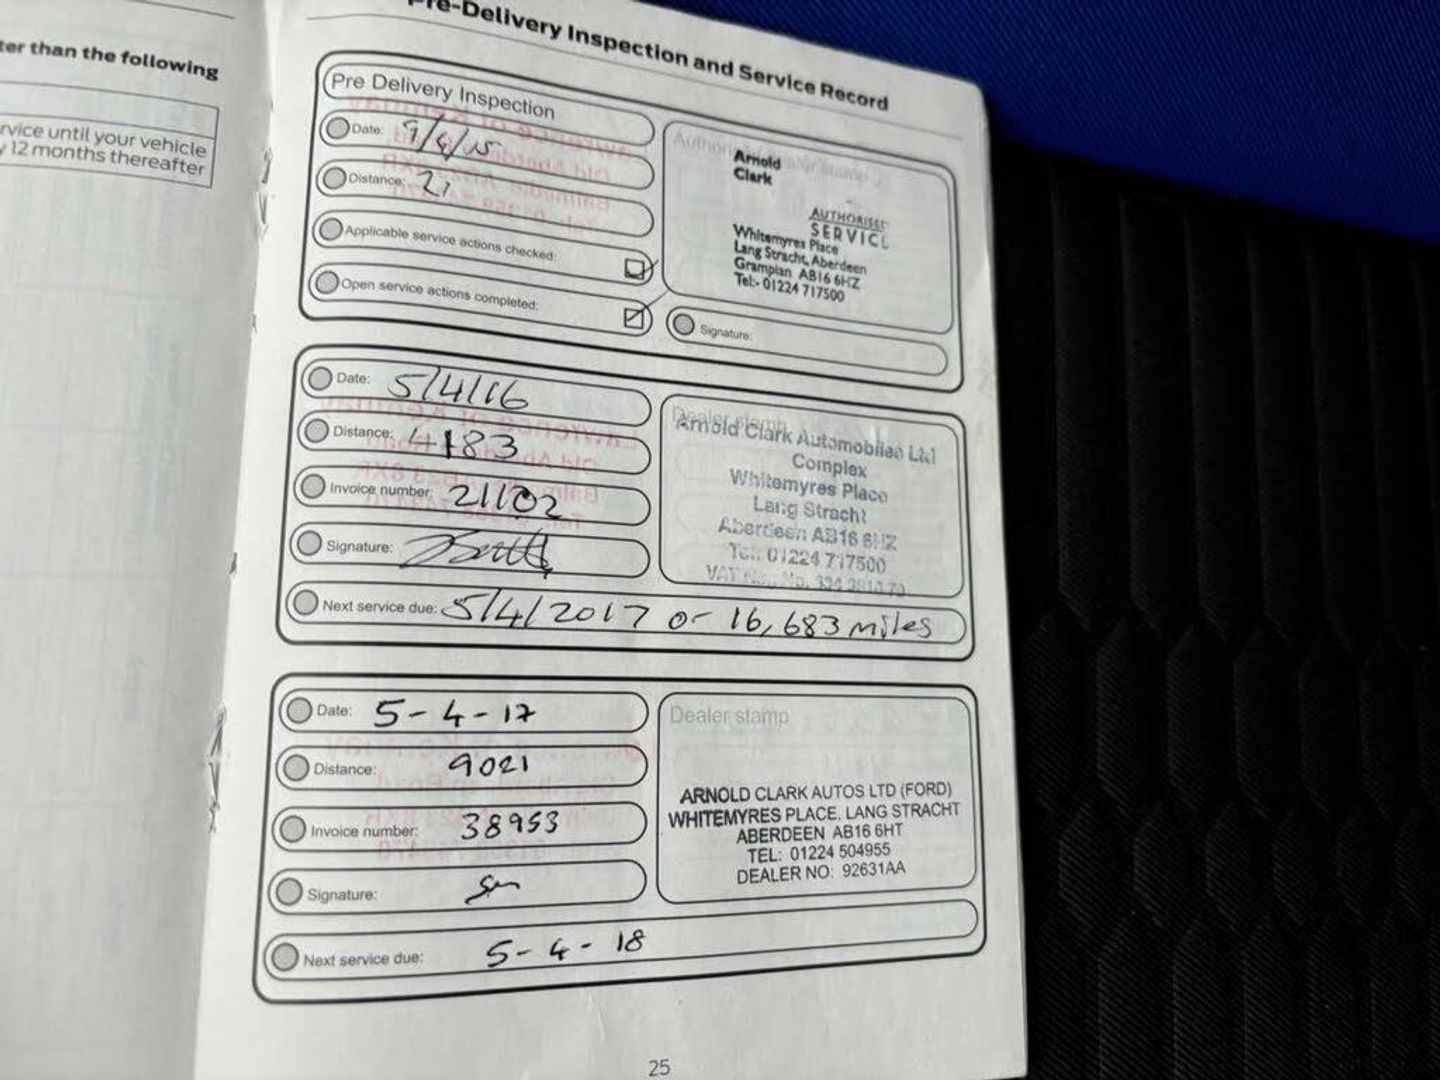 ter than the following
rvice until your vehicle
y 12 months thereafter
Pre-Delivery Inspection and Service Record
Pre Delivery Inspection
Date: 9/6/15
Distance: 21
Applicable service actions checked:
Open service actions completed:
Arnold
Clark
AUTHORISED
SERVICE
Whitemyres Place
Lang Stracht, Aberdeen
Grampian AB16 6HZ
Tel:- 01224 717500
Signature:
Date: 5/4/16
Distance: 4183
Invoice number: 21102
Signature:
Dealer stamp
Arnold Clark Automobiles Ltd
Complex
Whitemyres Place
Lang Stracht
Aberdeen AB16 6HZ
Tel: 01224 717500
Next service due: 5/4/2017 or 16,683 miles
Date: 5-4-17
Distance: 9021
Invoice number: 38953
Signature:
Dealer stamp
ARNOLD CLARK AUTOS LTD (FORD)
WHITEMYRES PLACE, LANG STRACHT
ABERDEEN AB16 6HT
TEL: 01224 504955
DEALER NO: 92631AA
Next service due: 5-4-18
25